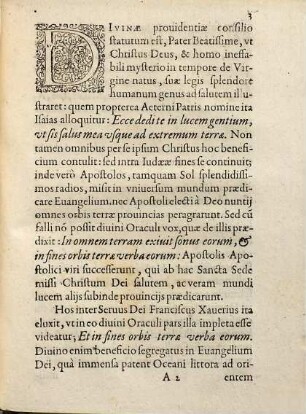 3
DIVINÆ prouidentiæ consilio
statutum est, Pater Beatissime, vt
Christus Deus, & homo ineffa-
bili mysterio in tempore de Vir-
gine natus, suæ legis splendore
humanum genus ad salutem illu-
straret: quem propterea Aeterni Patris nomine ita
Isaias alloquitur: Ecce dedi te in lucem gentium,
vt sis salus mea vsque ad extremum terræ. Non
tamen omnibus per se ipsum Christus hoc benefi-
cium contulit: sed intra Iudææ fines se continuit;
inde verò Apostolos, tamquam Sol splendidissi-
mos radios, misit in vniuersum mundum prædi-
care Euangelium. nec Apostoli electi à Deo nuntij
omnes orbis terræ prouincias peragrarunt. Sed cùm
falli nō possit diuini Oraculi vox, quæ de illis præ-
dixit: In omnem terram exiuit sonus eorum, &
in fines orbis terræ verba eorum: Apostolis Apo-
stolici viri successerunt, qui ab hac Sancta Sede
missi Christum Dei salutem, ac veram mundi
lucem alijs subinde prouincijs prædicarunt.
Hos inter Seruus Dei Franciscus Xauerius ita
eluxit, vt in eo diuini Oraculi pars illa impleta esse
videatur; Et in fines orbis terræ verba eorum.
Diuino enim beneficio segregatus in Euangelium
Dei, quà immensa patent Oceani littora ad ori-
A 2 entem